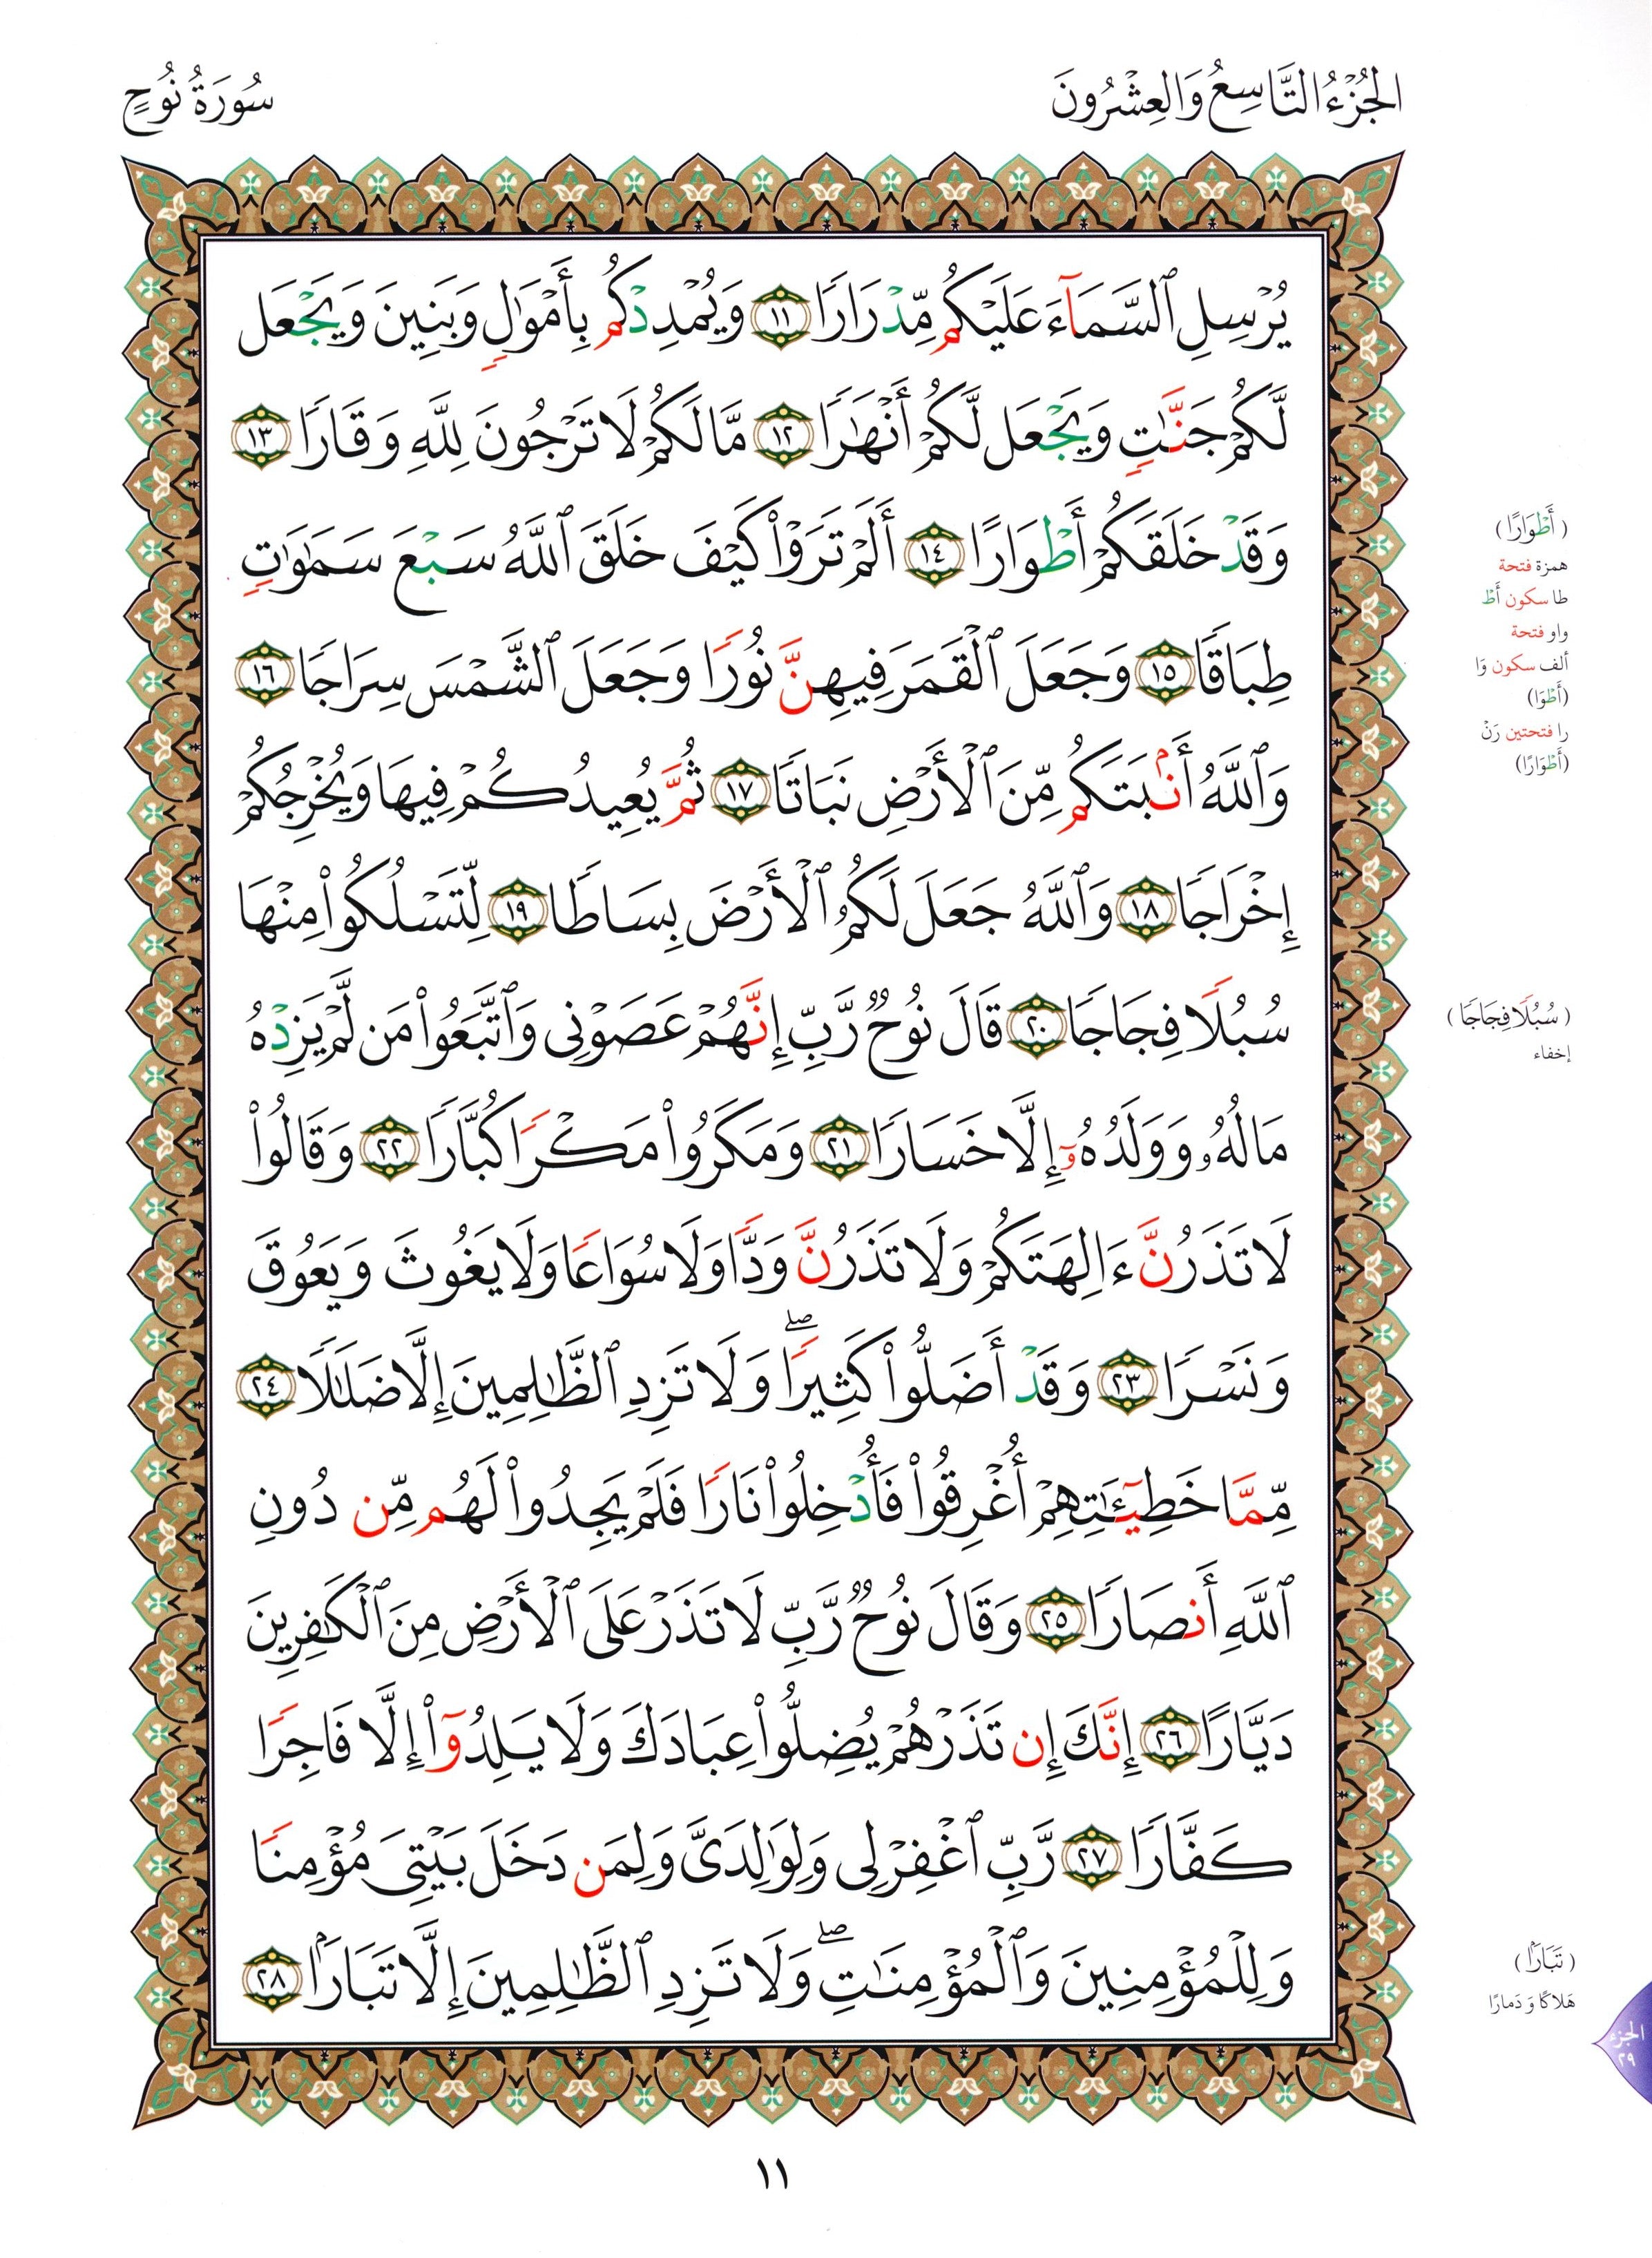 الجُزْءُ التَّاسِعُ وَالعِشْرُونَ
سُورَةُ نُوحٍ
يُرْسِلِ ٱلسَّمَآءَ عَلَيْكُم مِّدْرَارًا ١١ وَيُمْدِدْكُم بِأَمْوَٰلٍ وَبَنِينَ وَيَجْعَل
لَّكُمْ جَنَّٰتٍ وَيَجْعَل لَّكُمْ أَنْهَٰرًا ١٢ مَّا لَكُمْ لَا تَرْجُونَ لِلَّهِ وَقَارًا ١٣
وَقَدْ خَلَقَكُمْ أَطْوَارًا ١٤ أَلَمْ تَرَوْا۟ كَيْفَ خَلَقَ ٱللَّهُ سَبْعَ سَمَٰوَٰتٍ
طِبَاقًا ١٥ وَجَعَلَ ٱلْقَمَرَ فِيهِنَّ نُورًا وَجَعَلَ ٱلشَّمْسَ سِرَاجًا ١٦
وَٱللَّهُ أَنۢبَتَكُم مِّنَ ٱلْأَرْضِ نَبَاتًا ١٧ ثُمَّ يُعِيدُكُمْ فِيهَا وَيُخْرِجُكُمْ
إِخْرَاجًا ١٨ وَٱللَّهُ جَعَلَ لَكُمُ ٱلْأَرْضَ بِسَاطًا ١٩ لِّتَسْلُكُوا۟ مِنْهَا
سُبُلًا فِجَاجًا ٢٠ قَالَ نُوحٌ رَّبِّ إِنَّهُمْ عَصَوْنِى وَٱتَّبَعُوا۟ مَن لَّمْ يَزِدْهُ
مَالُهُۥ وَوَلَدُهُۥٓ إِلَّا خَسَارًا ٢١ وَمَكَرُوا۟ مَكْرًا كُبَّارًا ٢٢ وَقَالُوا۟
لَا تَذَرُنَّ ءَالِهَتَكُمْ وَلَا تَذَرُنَّ وَدًّا وَلَا سُوَاعًا وَلَا يَغُوثَ وَيَعُوقَ
وَنَسْرًا ٢٣ وَقَدْ أَضَلُّوا۟ كَثِيرًا ۖ وَلَا تَزِدِ ٱلظَّٰلِمِينَ إِلَّا ضَلَٰلًا ٢٤
مِّمَّا خَطِيٓـَٰٔتِهِمْ أُغْرِقُوا۟ فَأُدْخِلُوا۟ نَارًا فَلَمْ يَجِدُوا۟ لَهُم مِّن دُونِ
ٱللَّهِ أَنصَارًا ٢٥ وَقَالَ نُوحٌ رَّبِّ لَا تَذَرْ عَلَى ٱلْأَرْضِ مِنَ ٱلْكَٰفِرِينَ
دَيَّارًا ٢٦ إِنَّكَ إِن تَذَرْهُمْ يُضِلُّوا۟ عِبَادَكَ وَلَا يَلِدُوٓا۟ إِلَّا فَاجِرًا
كَفَّارًا ٢٧ رَّبِّ ٱغْفِرْ لِى وَلِوَٰلِدَىَّ وَلِمَن دَخَلَ بَيْتِىَ مُؤْمِنًا
وَلِلْمُؤْمِنِينَ وَٱلْمُؤْمِنَٰتِ ۖ وَلَا تَزِدِ ٱلظَّٰلِمِينَ إِلَّا تَبَارًۢا ٢٨
(أَطْوَارًا)
همزة فتحة
طا سكون أَطْ
واو فتحة
ألف سكون وَا
(أَطْوَا)
را فتحتين رَنْ
(أَطْوَارًا)
(سُبُلًا فِجَاجًا)
إخفاء
(تَبَارًۢا)
هَلاكًا وَ دَمارًا
الجزء
٢٩
١١